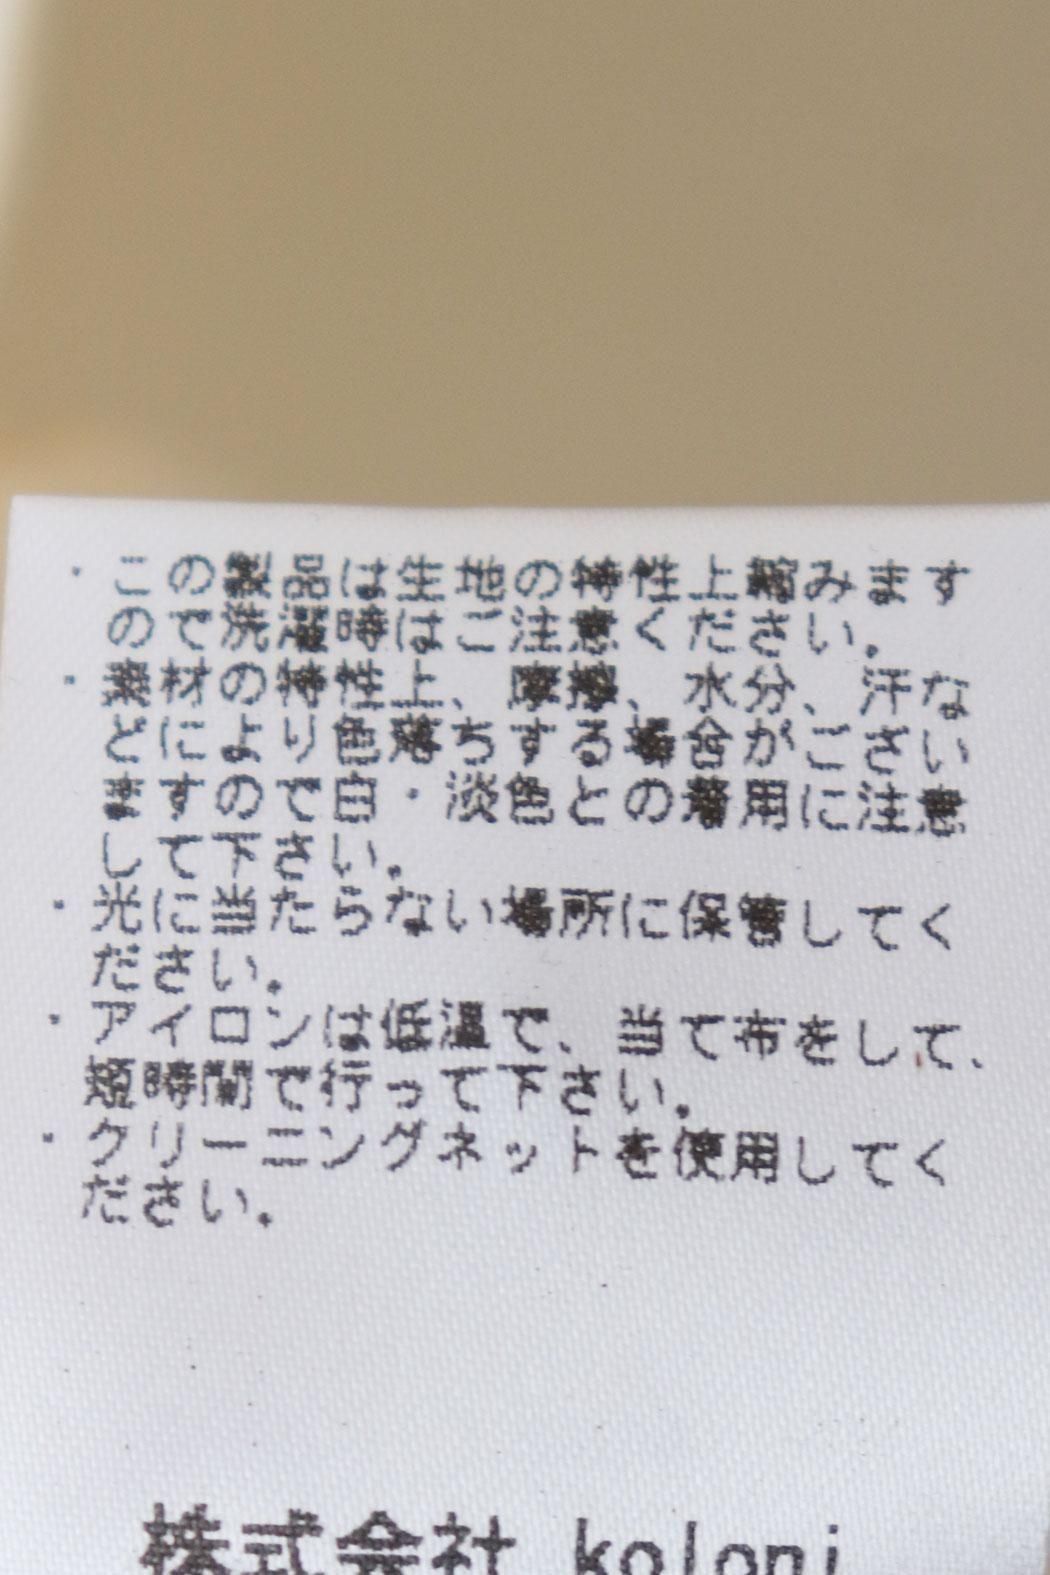 ・この製品は生地の特性上縮みます
ので洗濯時はご注意ください。
・素材の特性上、摩擦、水分、汗な
どにより色落ちする場合がござい
ますので白・淡色との着用に注意
して下さい。
・光に当たらない場所に保管してく
ださい。
・アイロンは低温で、当て布をして、
短時間で行って下さい。
・クリーニングネットを使用してく
ださい。
株式会社 koloni